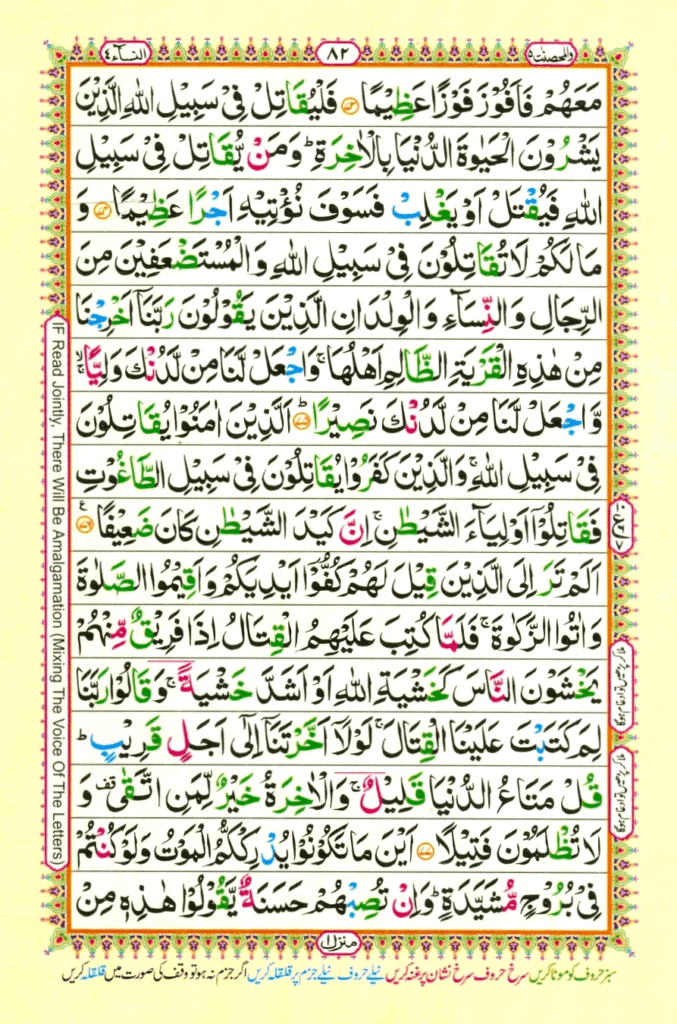 والمحصنت ۵
۸۲
النسآء ۴
مَعَهُمْ فَاَفُوْزَ فَوْزًا عَظِيْمًا ﴿۷۳﴾ فَلْيُقَاتِلْ فِيْ سَبِيْلِ اللّٰهِ الَّذِيْنَ
يَشْرُوْنَ الْحَيٰوةَ الدُّنْيَا بِالْاٰخِرَةِ ؕ وَمَنْ يُّقَاتِلْ فِيْ سَبِيْلِ
اللّٰهِ فَيُقْتَلْ اَوْ يَغْلِبْ فَسَوْفَ نُؤْتِيْهِ اَجْرًا عَظِيْمًا ﴿۷۴﴾ وَ
مَا لَكُمْ لَا تُقَاتِلُوْنَ فِيْ سَبِيْلِ اللّٰهِ وَالْمُسْتَضْعَفِيْنَ مِنَ
الرِّجَالِ وَالنِّسَآءِ وَالْوِلْدَانِ الَّذِيْنَ يَقُوْلُوْنَ رَبَّنَاۤ اَخْرِجْنَا
مِنْ هٰذِهِ الْقَرْيَةِ الظَّالِمِ اَهْلُهَا ۚ وَاجْعَلْ لَّنَا مِنْ لَّدُنْكَ وَلِيًّا ۙۚ
وَّاجْعَلْ لَّنَا مِنْ لَّدُنْكَ نَصِيْرًا ﴿۷۵﴾ اَلَّذِيْنَ اٰمَنُوْا يُقَاتِلُوْنَ
فِيْ سَبِيْلِ اللّٰهِ ۚ وَالَّذِيْنَ كَفَرُوْا يُقَاتِلُوْنَ فِيْ سَبِيْلِ الطَّاغُوْتِ
فَقَاتِلُوْۤا اَوْلِيَآءَ الشَّيْطٰنِ ۚ اِنَّ كَيْدَ الشَّيْطٰنِ كَانَ ضَعِيْفًا ﴿۷۶﴾ ع
اَلَمْ تَرَ اِلَى الَّذِيْنَ قِيْلَ لَهُمْ كُفُّوْۤا اَيْدِيَكُمْ وَاَقِيْمُوا الصَّلٰوةَ
وَاٰتُوا الزَّكٰوةَ ۚ فَلَمَّا كُتِبَ عَلَيْهِمُ الْقِتَالُ اِذَا فَرِيْقٌ مِّنْهُمْ
يَخْشَوْنَ النَّاسَ كَخَشْيَةِ اللّٰهِ اَوْ اَشَدَّ خَشْيَةً ۚ وَقَالُوْا رَبَّنَا
لِمَ كَتَبْتَ عَلَيْنَا الْقِتَالَ ۚ لَوْلَاۤ اَخَّرْتَنَاۤ اِلٰۤى اَجَلٍ قَرِيْبٍ ؕ
قُلْ مَتَاعُ الدُّنْيَا قَلِيْلٌ ۚ وَالْاٰخِرَةُ خَيْرٌ لِّمَنِ اتَّقٰى قف وَ
لَا تُظْلَمُوْنَ فَتِيْلًا ﴿۷۷﴾ اَيْنَ مَا تَكُوْنُوْا يُدْرِكْكُّمُ الْمَوْتُ وَلَوْ كُنْتُمْ
فِيْ بُرُوْجٍ مُّشَيَّدَةٍ ؕ وَاِنْ تُصِبْهُمْ حَسَنَةٌ يَّقُوْلُوْا هٰذِهٖ مِنْ
منزل ۱
سبز حروف کو موٹا کریں سرخ حروف سرخ نشان پر غنہ کریں نیلے حروف نیلے جزم پر قلقلہ کریں اگر جزم نہ ہو تو وقف کی صورت میں قلقلہ کریں
IF Read Jointly, There Will Be Amalgamation (Mixing The Voice Of The Letters)
ملا کر پڑھیں تو ادغام ہوگا
ملا کر پڑھیں تو ادغام ہوگا